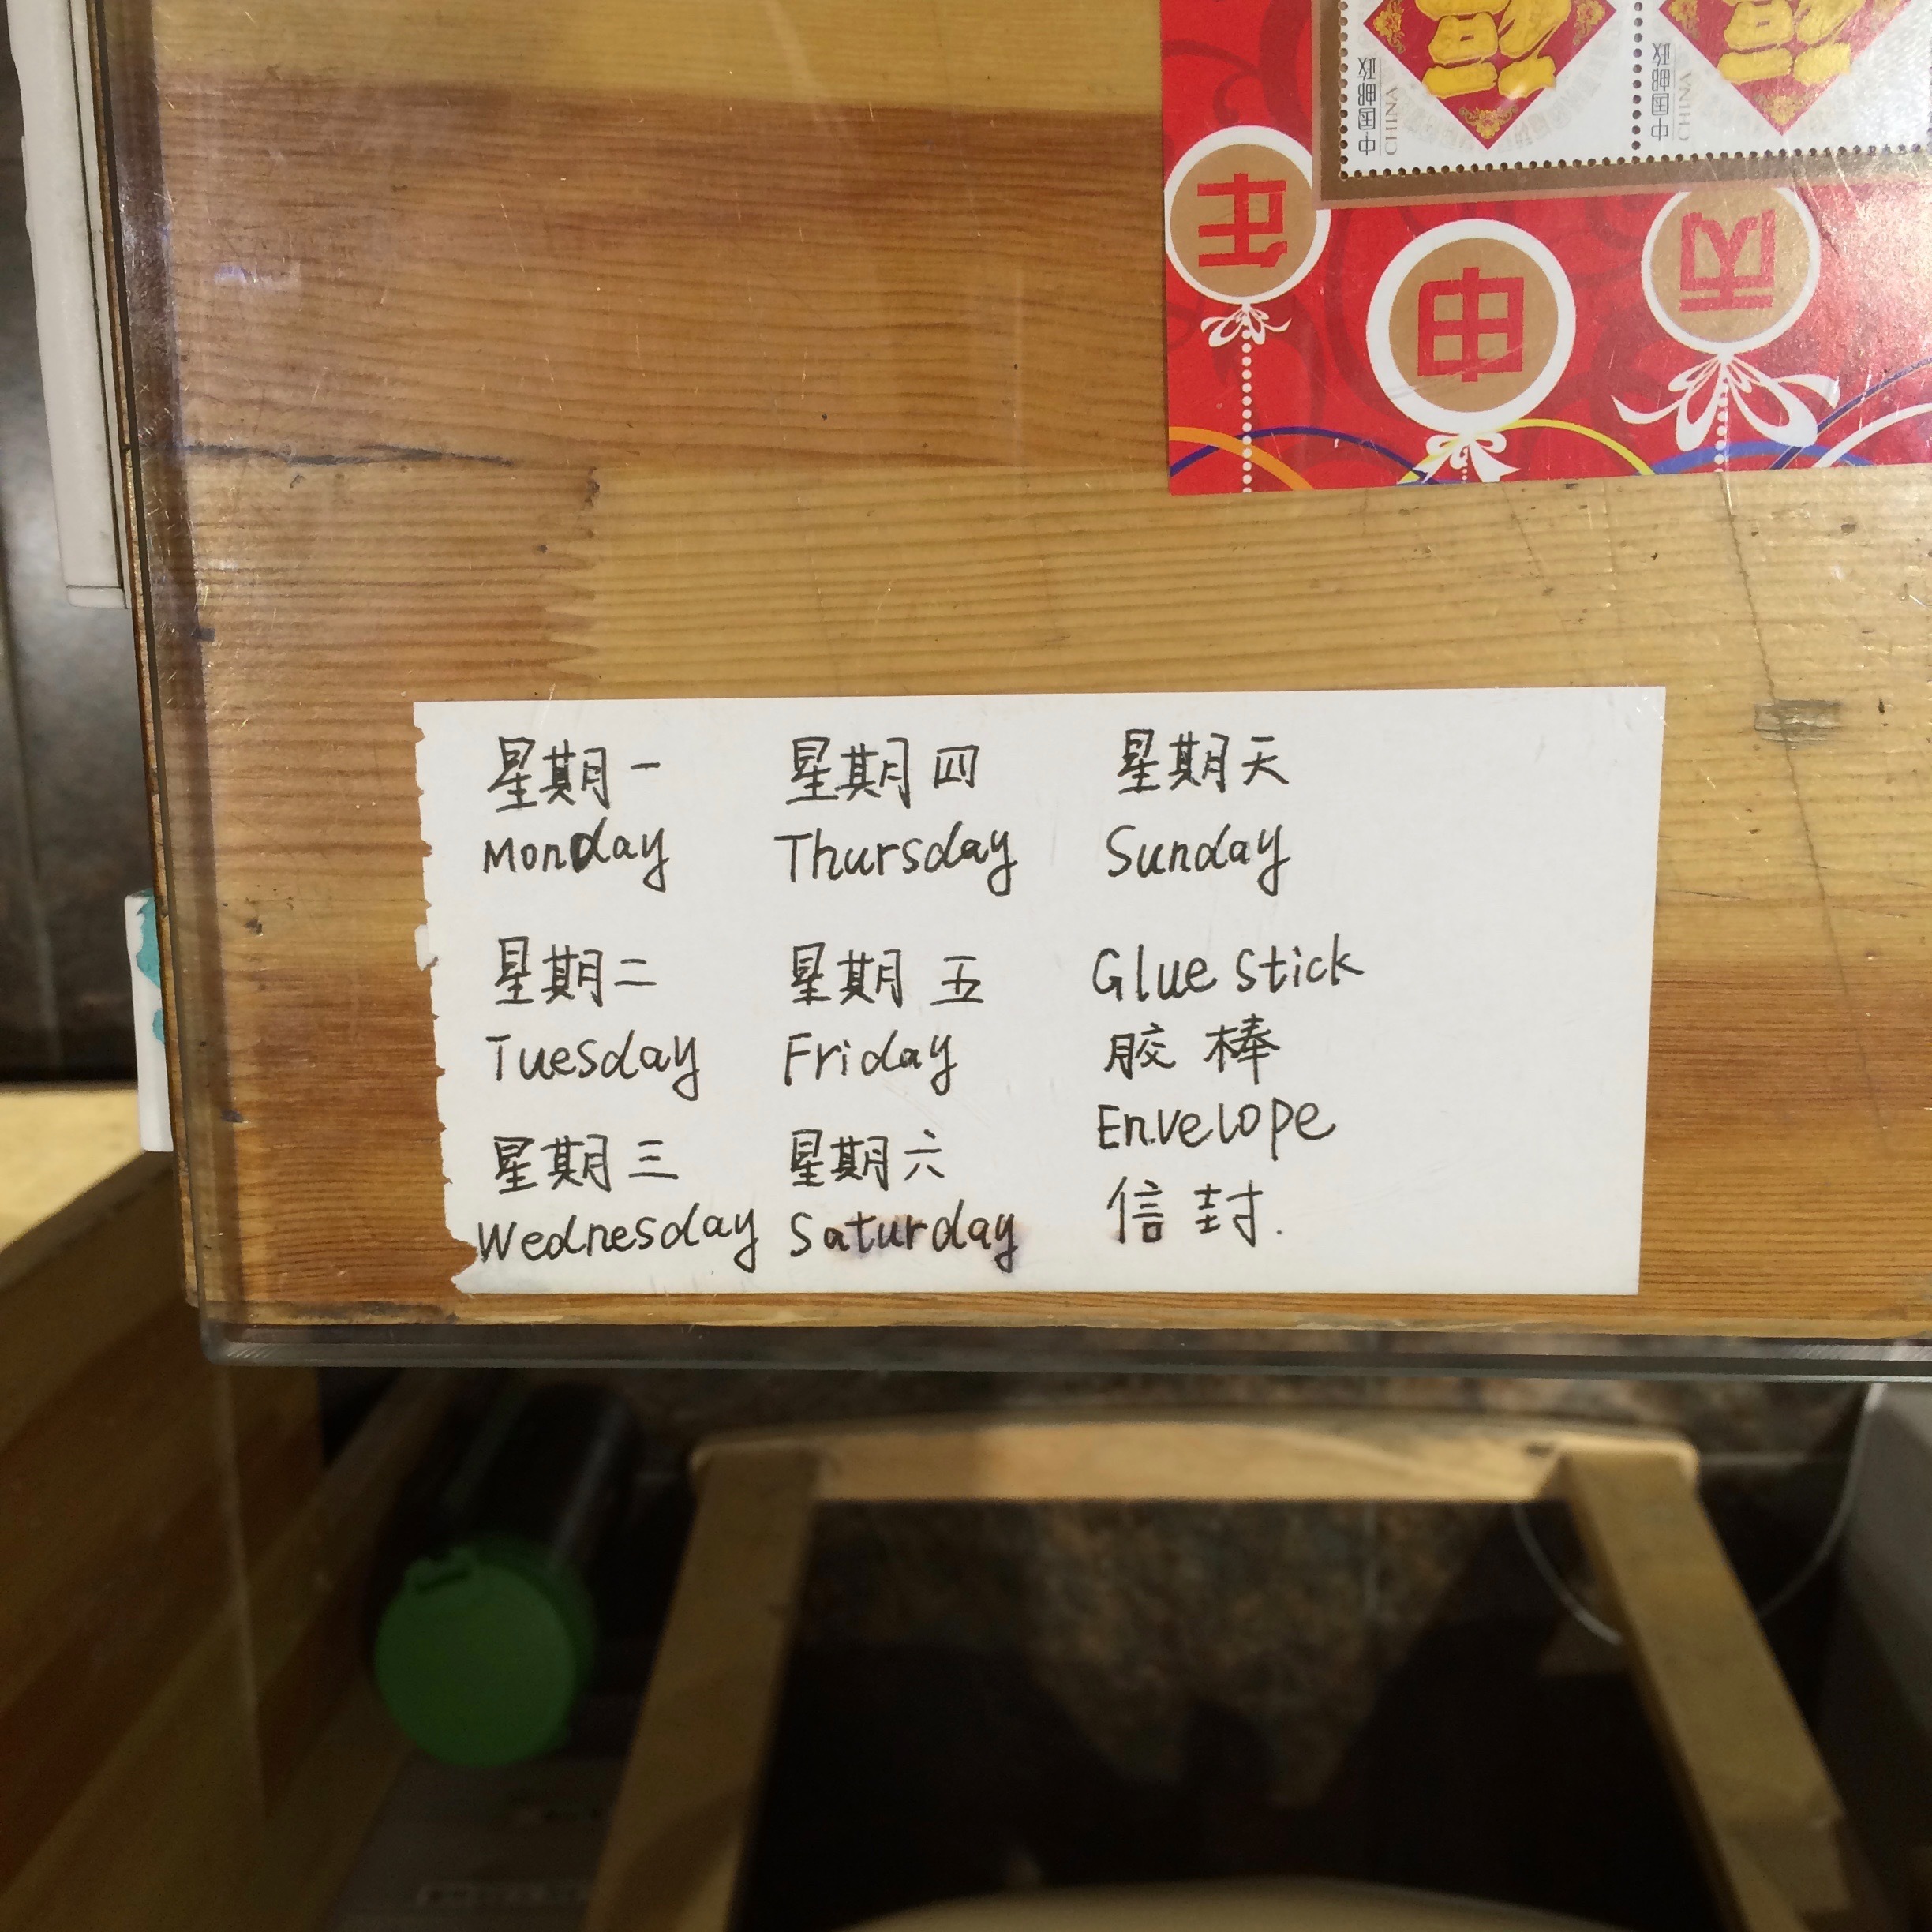 中国邮政
CHINA
福
中国邮政
CHINA
福
丙
申
年
星期一
Monday
星期二
Tuesday
星期三
Wednesday
星期四
Thursday
星期五
Friday
星期六
Saturday
星期天
Sunday
Glue stick
胶棒
Envelope
信封.